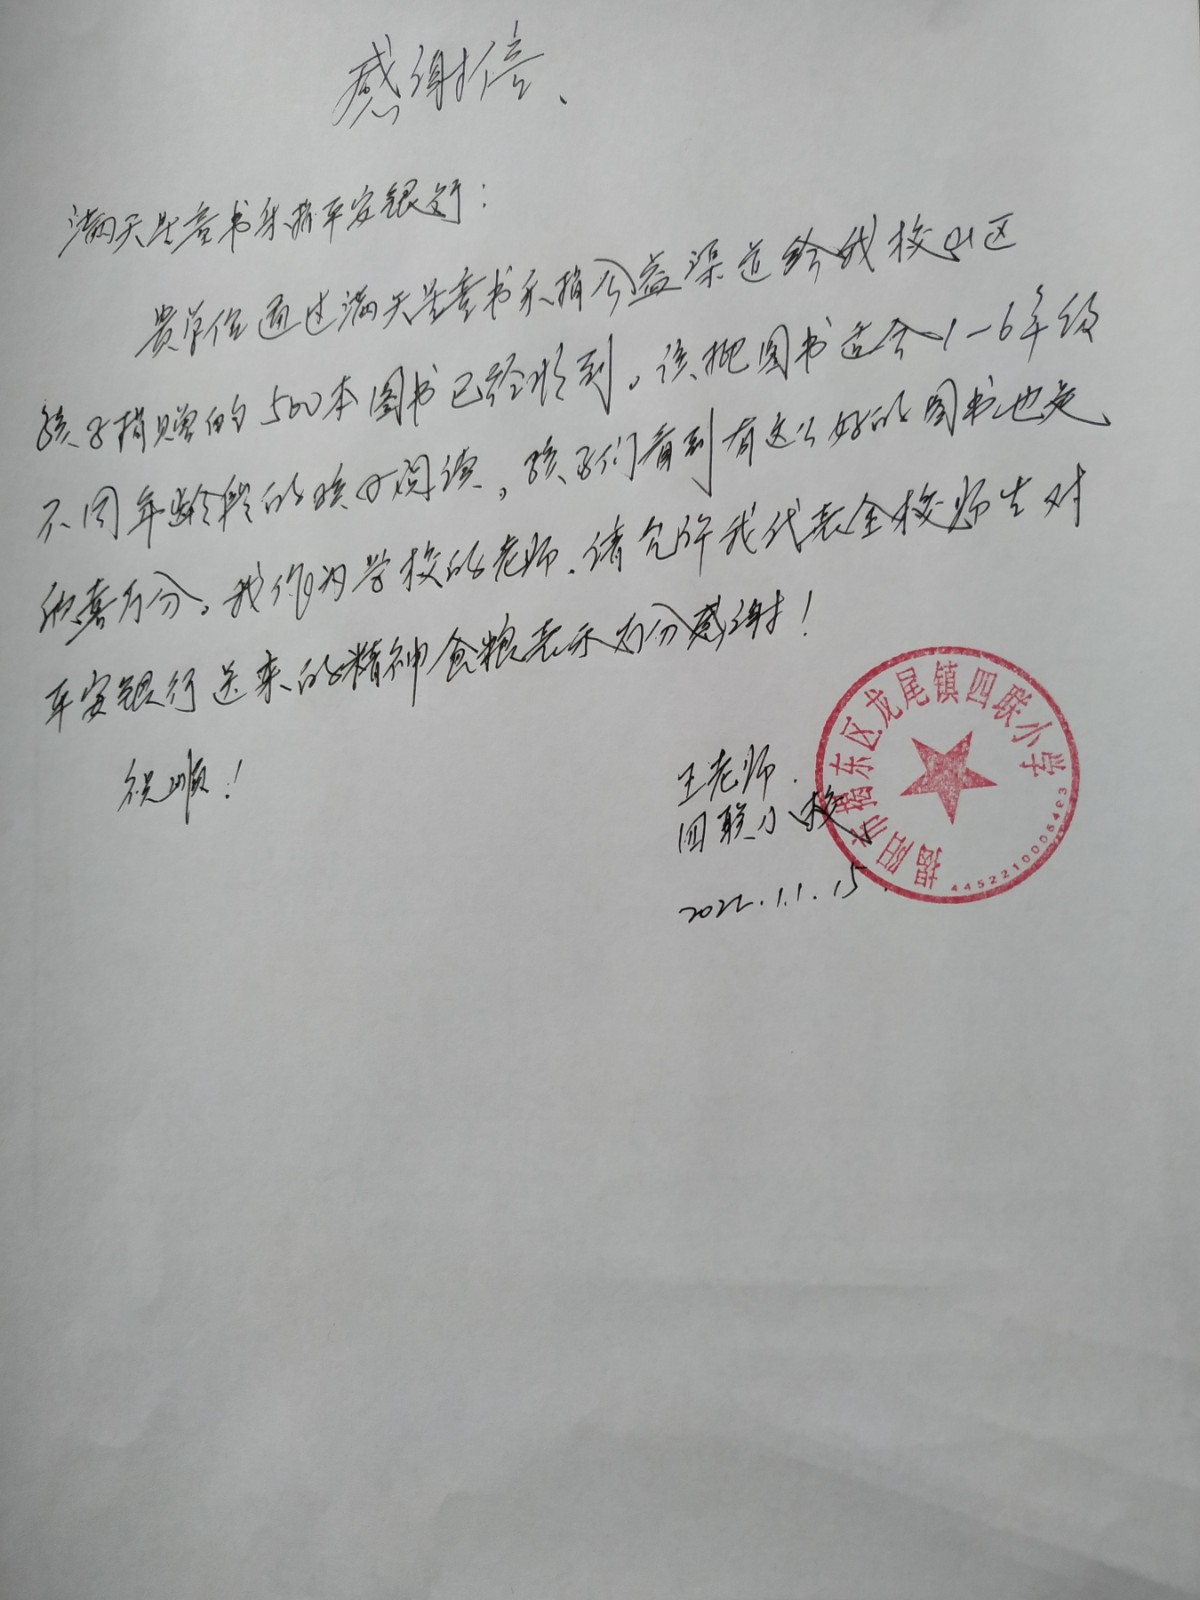 感谢信、
满天星童书乐捐平安银行：
贵单位通过满天星童书乐捐公益渠道给我校山区
孩子捐赠的500本图书已经收到。该批图书适合1-6年级
不同年龄段的孩子阅读，孩子们看到有这么好的图书也是
欣喜万分。我作为学校的老师、请允许我代表全校师生对
平安银行送来的精神食粮表示万分感谢！
祝顺！
王老师.
四联小校
2022.11.15.
揭阳市揭东区龙尾镇四联小学